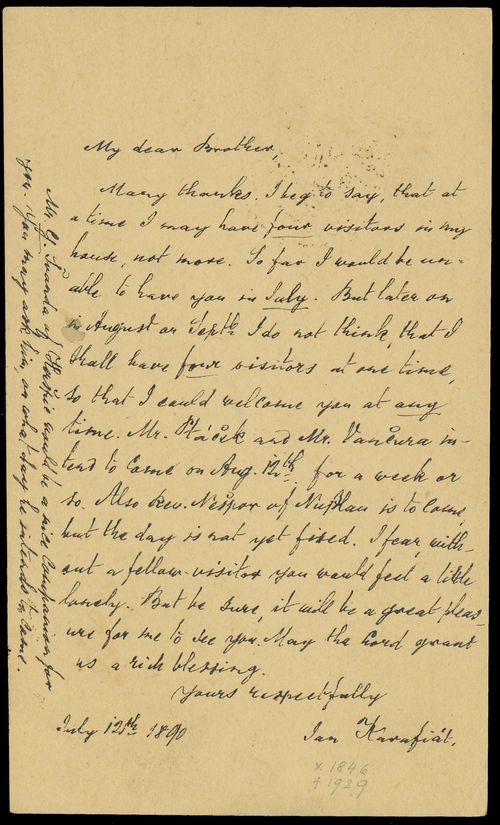 My dear Brother,
Many thanks. I beg to say, that at
a time I may have four visitors in my
house, not more. So far I would be un-
able to have you in July. But later on
in August or Septh. I do not think, that I
shall have four visitors at one time,
so that I could welcome you at any
time. Mr. Ptáčck and Mr. Vančura in-
tend to come on Aug. 12th for a week or
so. Also Rev. Nešpor of is to come,
but the day is not yet fixed. I fear, with-
out a fellow-visitor you would feel a little
lonely. But be sure, it will be a great pleas-
ure for me to see you. May the Lord grant
us a rich blessing.
Yours respectfully
July 12th 1890 Jan Karafiát.
x 1846
† 1929
Mr. of would be a nice companion for
you. You may ask him, on what day he intends to come.